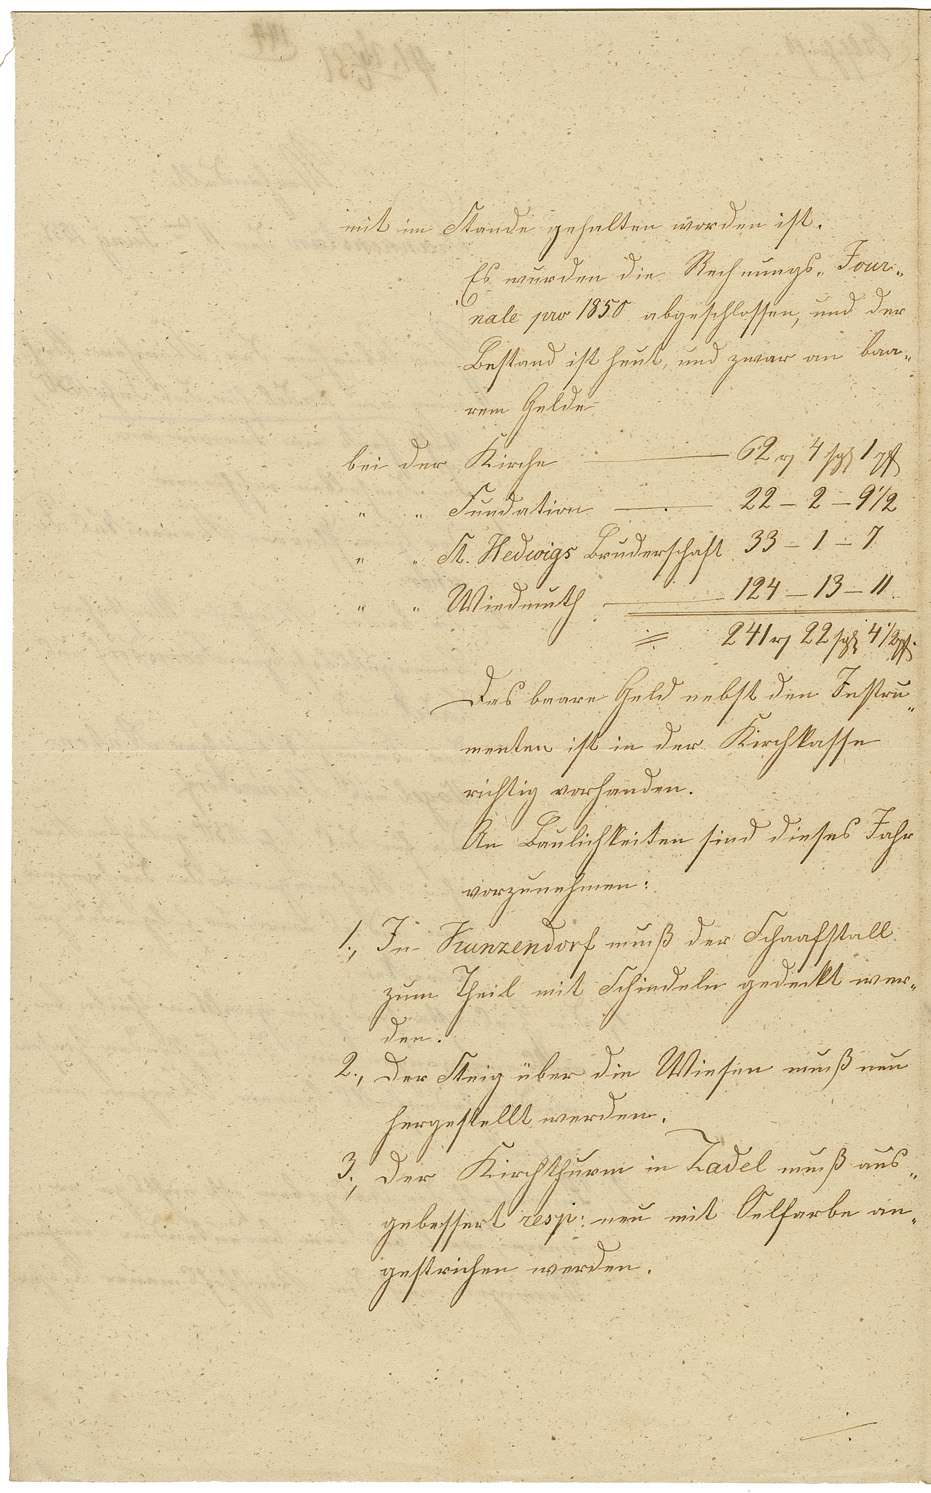 mit im Stande gehalten worden ist.
Es wurden die Rechnungs-Jour-
nale pro 1850 abgeschlossen, und der
Bestand ist heut, und zwar an baa-
rem Gelde
bei der Kirche — 62 rg 4 sgl 1 pf
" " Fundation — 22 – 2 – 9 1/2
" " St. Hedwigs Bruderschaft 33 – 1 – 7
" " Wiedmuth — 124 – 13 – 11.
= 241 rg 22 sgl 4 1/2 pf.
Das baare Geld nebst den Instru-
menten ist in der Kirchkasse
richtig vorhanden.
An Baulichkeiten sind dieses Jahr
vorzunehmen:
1., In Kunzendorf muß der Schaafstall
zum Theil mit Schindeln gedeckt wer-
den.
2., Der Steig über die Wiesen muß neu
hergestellt werden.
3., Der Kirchthurm in Zadel muß aus-
gebessert resp: neu mit Oelfarbe an-
gestrichen werden.